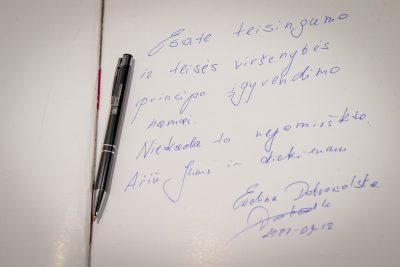 Esate teisingumo
ir teisės viršenybės
principo įgyvendimo
namai.
Niekada to nepamirškite.
Ačiū Jums ir kiekvienam
Evelina Dobrovolska